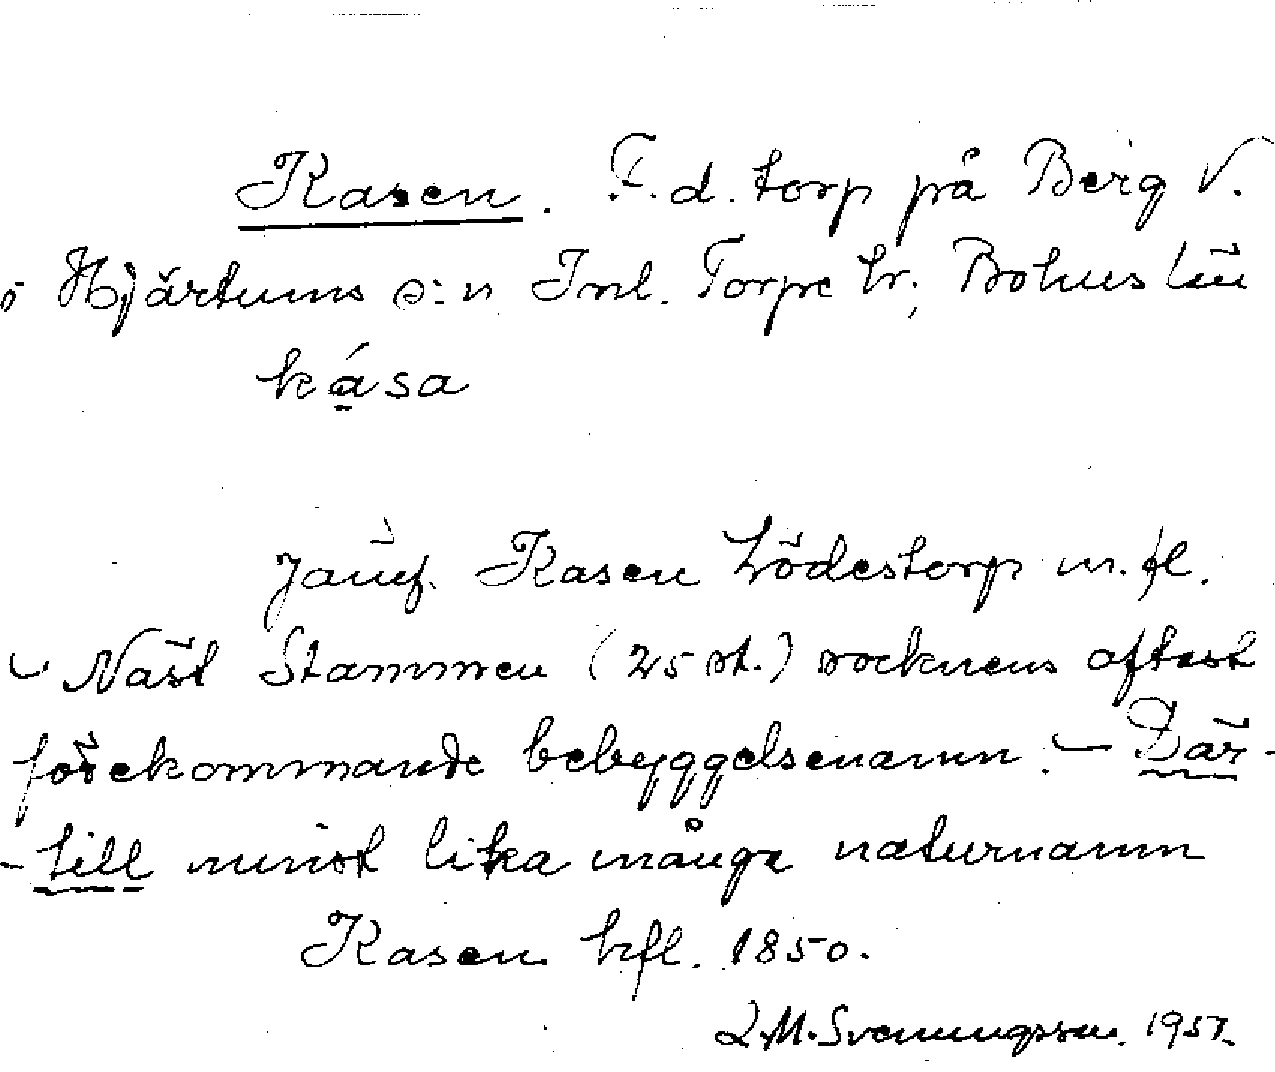 Kasen. F.d. torp på Berg V.
i Hjärtums s:n Inl. Torpe hr; Bohuslän
kása
Jämf. Kasen Lödestorp m.fl.
– Näst Stammen (25 st.) socknens oftast
förekommande bebyggelsenamn. – Där-
-till minst lika många naturnamn
Kasen hfl. 1850.
L.M. Svenungsson. 1957.